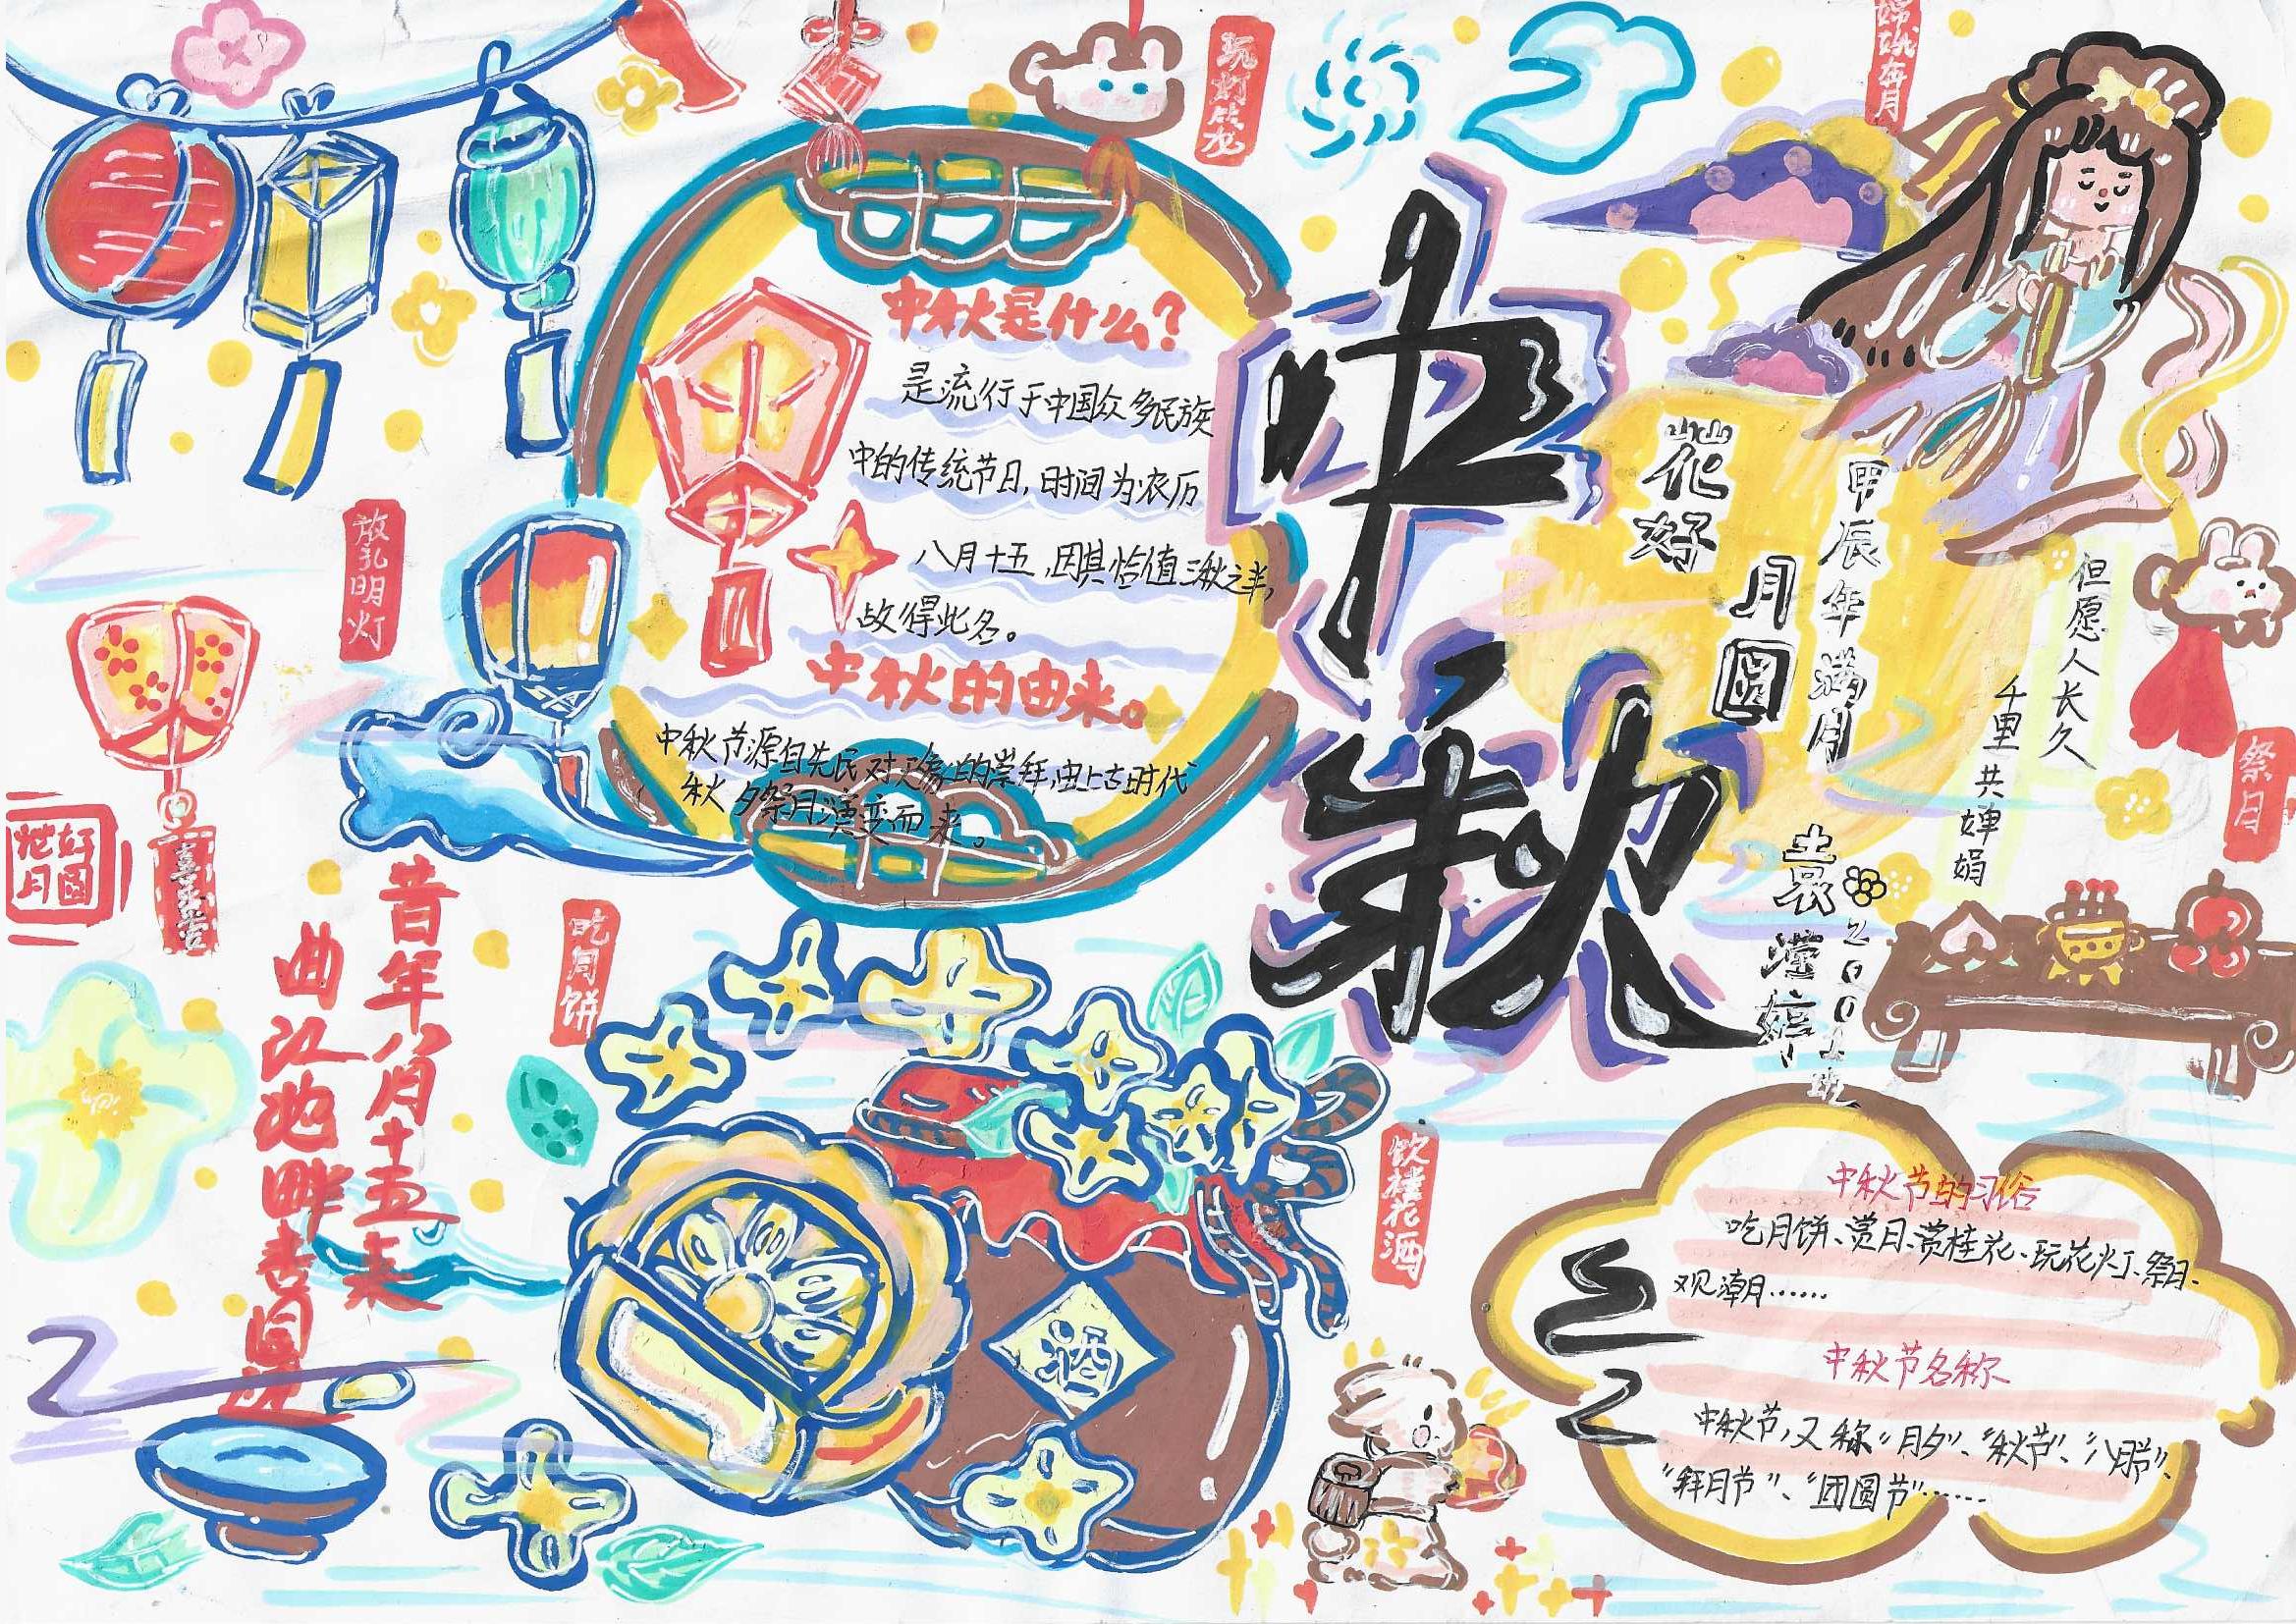 玩灯笼
嫦娥奔月
中秋是什么?
是流行于中国众多民族
中的传统节日,时间为农历
八月十五,因其恰值三秋之半,
故得此名。
中秋的由来。
中秋节源自先民对天象的崇拜,由上古时代
秋夕祭月演变而来。
中秋
花好
月圆
甲辰年满月
但愿人长久
千里共婵娟
祭月
放孔明灯
花好月圆
昔年八月十五夜
曲江池畔杏园边
吃月饼
饮桂花酒
酒
中秋节的习俗
吃月饼、赏月、赏桂花、玩花灯、祭月、
观潮……
中秋节名称
中秋节,又称“月夕”、“秋节”、“八月节”、
“拜月节”、“团圆节”……